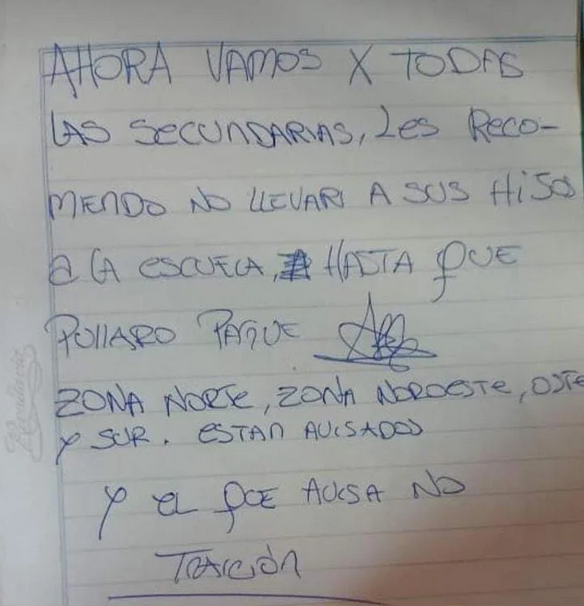 AHORA VAMOS X TODAS
LAS SECUNDARIAS, LES RECO-
MIENDO NO LLEVAR A SUS HIJOS
a LA ESCUELA, HASTA QUE
PULLARO PAGUE
ZONA NORTE, ZONA NOROESTE, OESTE
Y SUR. ESTAN AVISADOS
Y EL QUE AVISA NO
TRAICIÓN